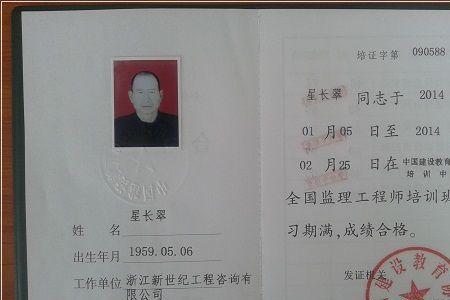 星长翠
姓名
出生年月 1959.05.06
工作单位 浙江新世纪工程咨询有
限公司
培证字第 090588
星长翠 同志于 2014
01 月 05 日至 2014
02 月 25 日在 中国建设教育
培训中
全国监理工程师培训班
习期满,成绩合格。
发证机关
建设教育